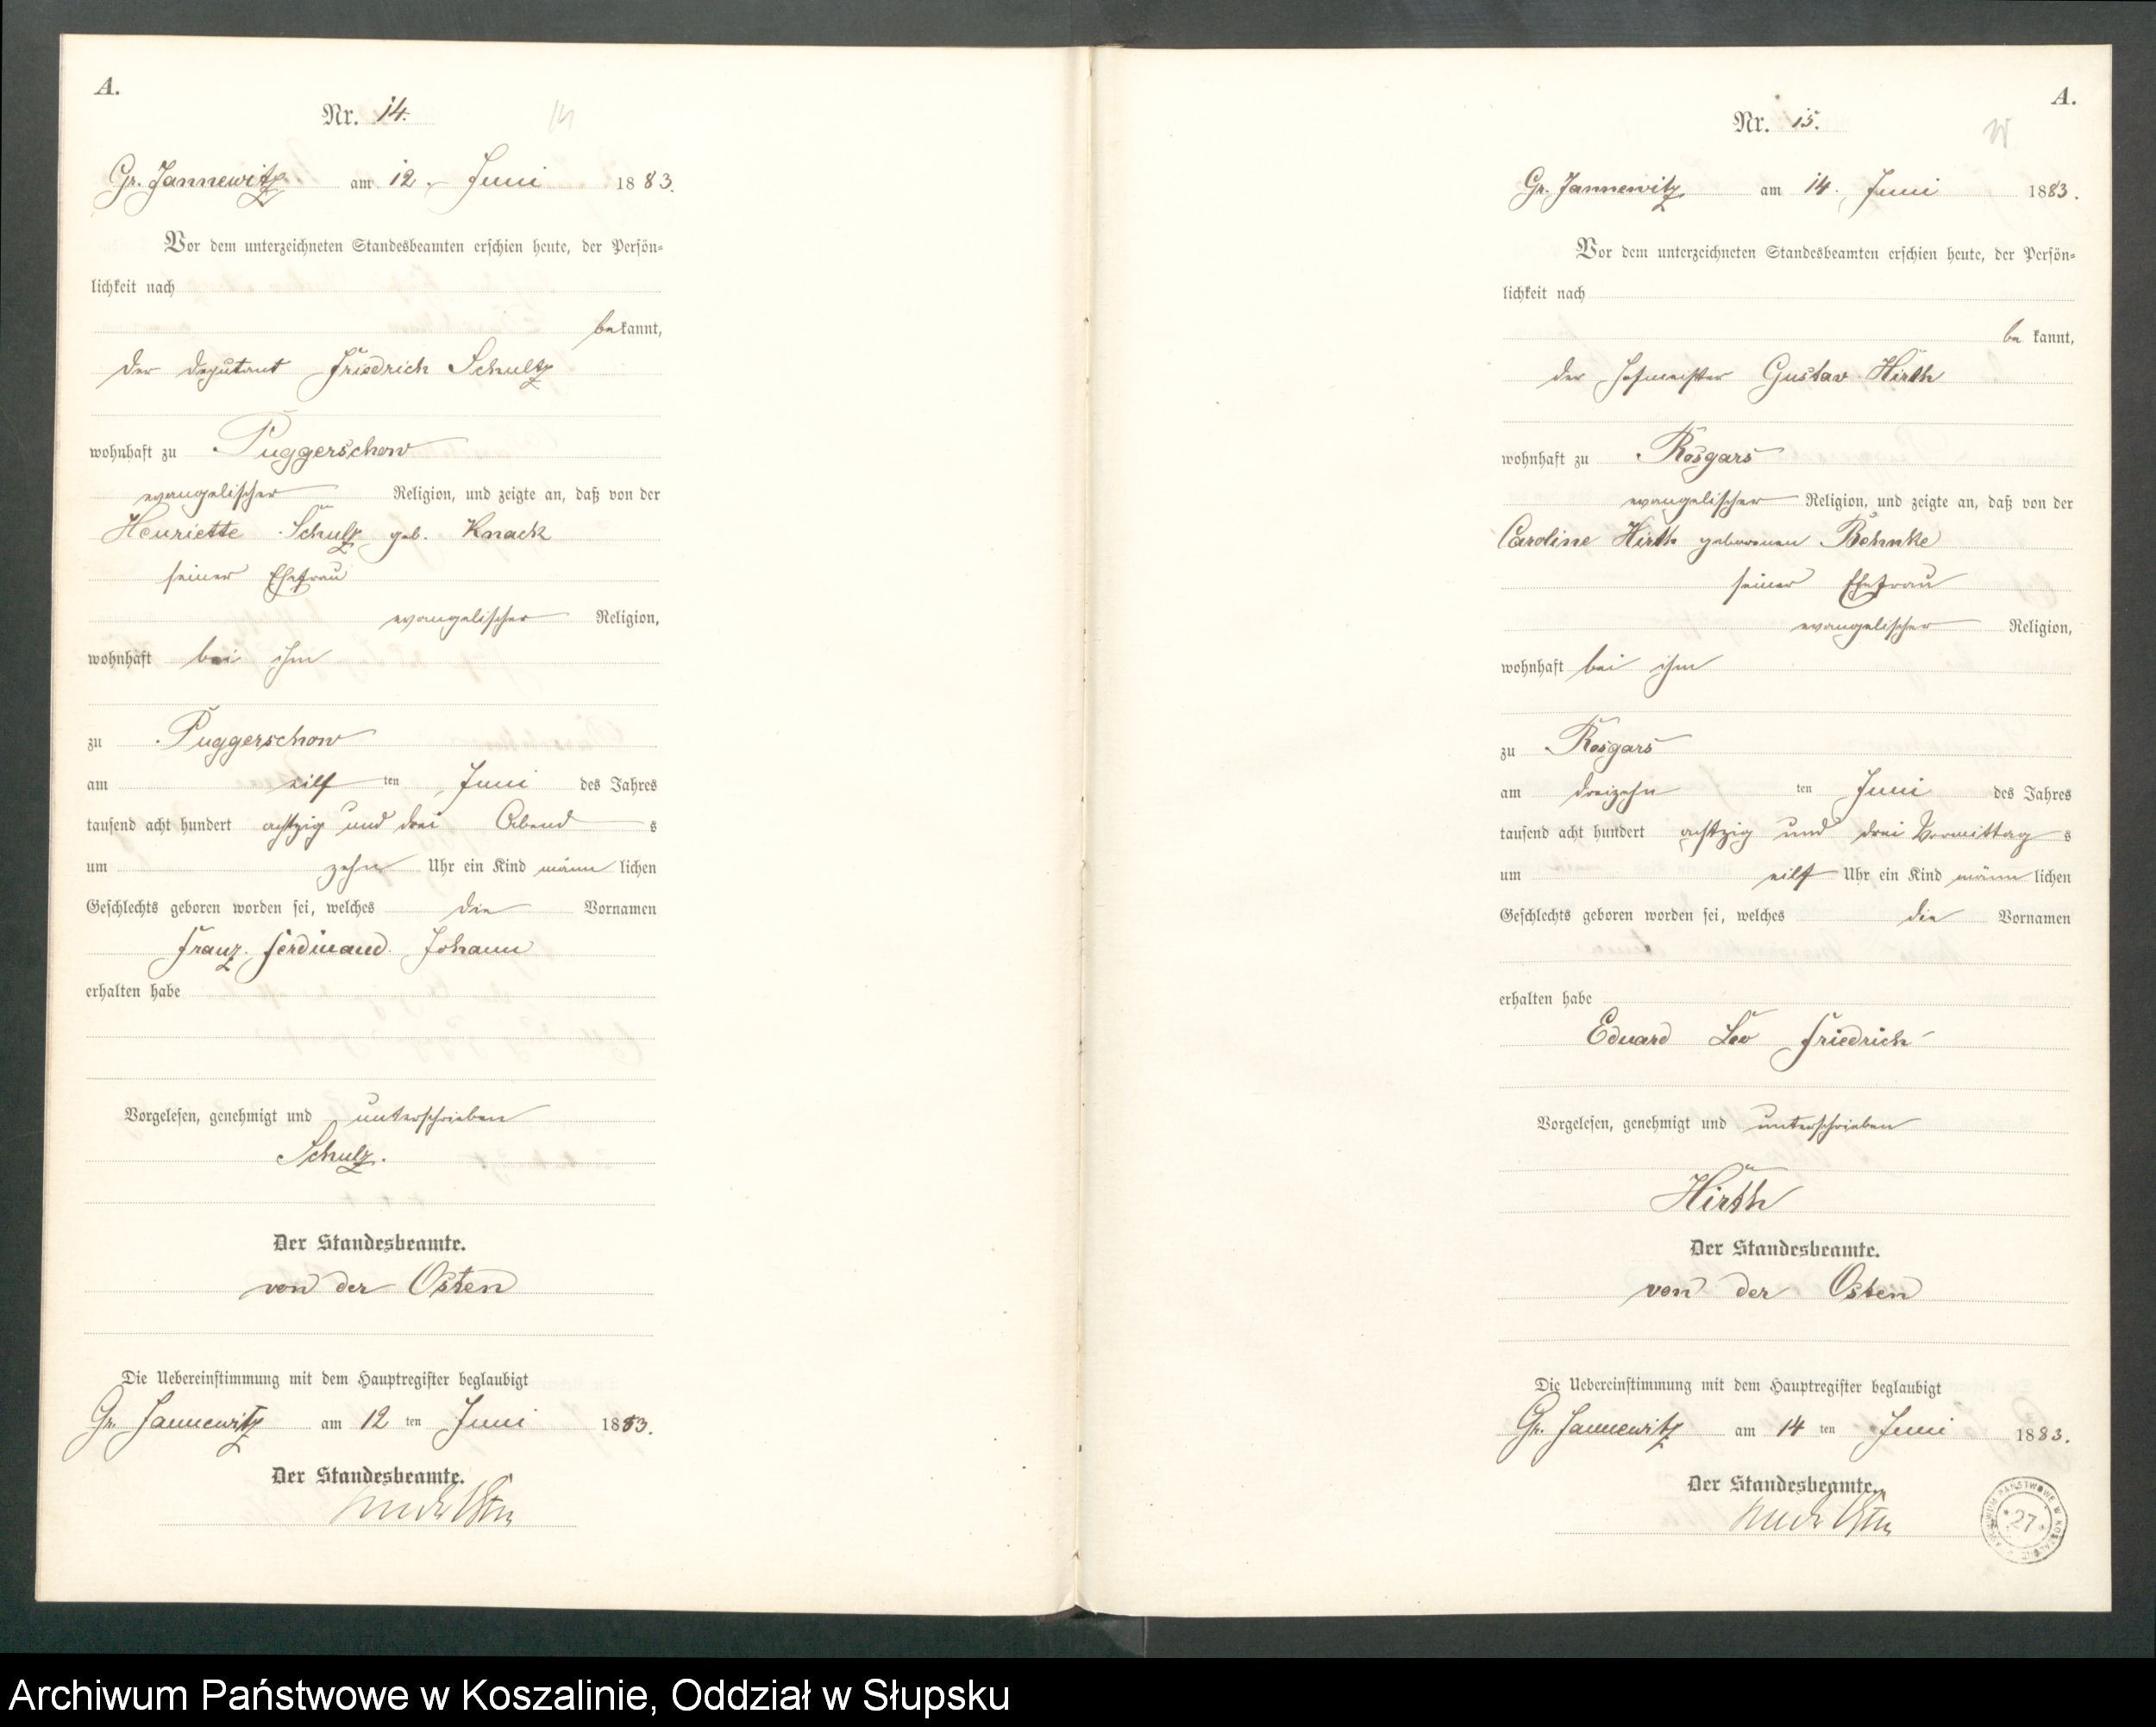 A.
Nr. 14.
Gr. Jannewitz am 12. Juni 1883.
Vor dem unterzeichneten Standesbeamten erschien heute, der Persön-
lichkeit nach
bekannt,
der Deputant Friedrich Schultz
wohnhaft zu Puggerschow
evangelischer Religion, und zeigte an, daß von der
Henriette Schulz geb. Knack
seiner Ehefrau
evangelischer Religion,
wohnhaft bei ihm
zu Puggerschow
am eilf ten Juni des Jahres
tausend acht hundert achtzig und drei Abend s
um zehn Uhr ein Kind männ lichen
Geschlechts geboren worden sei, welches die Vornamen
Franz Ferdinand Johann
erhalten habe
Vorgelesen, genehmigt und unterschrieben
Schulz.
Der Standesbeamte.
von der Osten
Die Uebereinstimmung mit dem Hauptregister beglaubigt
Gr. Jannewitz am 12 ten Juni 1883.
Der Standesbeamte.
von der Osten
A.
Nr. 15.
Gr. Jannewitz am 14. Juni 1883.
Vor dem unterzeichneten Standesbeamten erschien heute, der Persön-
lichkeit nach
be kannt,
der Hofmeister Gustav Hirth
wohnhaft zu Rosgars
evangelischer Religion, und zeigte an, daß von der
Caroline Hirth geborenen Behnke
seiner Ehefrau
evangelischer Religion,
wohnhaft bei ihm
zu Rosgars
am dreizehn ten Juni des Jahres
tausend acht hundert achtzig und drei Vormittag s
um eilf Uhr ein Kind männ lichen
Geschlechts geboren worden sei, welches die Vornamen
erhalten habe
Eduard Leo Friedrich
Vorgelesen, genehmigt und unterschrieben
Hirth
Der Standesbeamte.
von der Osten
Die Uebereinstimmung mit dem Hauptregister beglaubigt
Gr. Jannewitz am 14 ten Juni 1883.
Der Standesbeamte.
von der Osten
ARCHIWUM PAŃSTWOWE W KOSZALINIE
* 27 *
Archiwum Państwowe w Koszalinie, Oddział w Słupsku